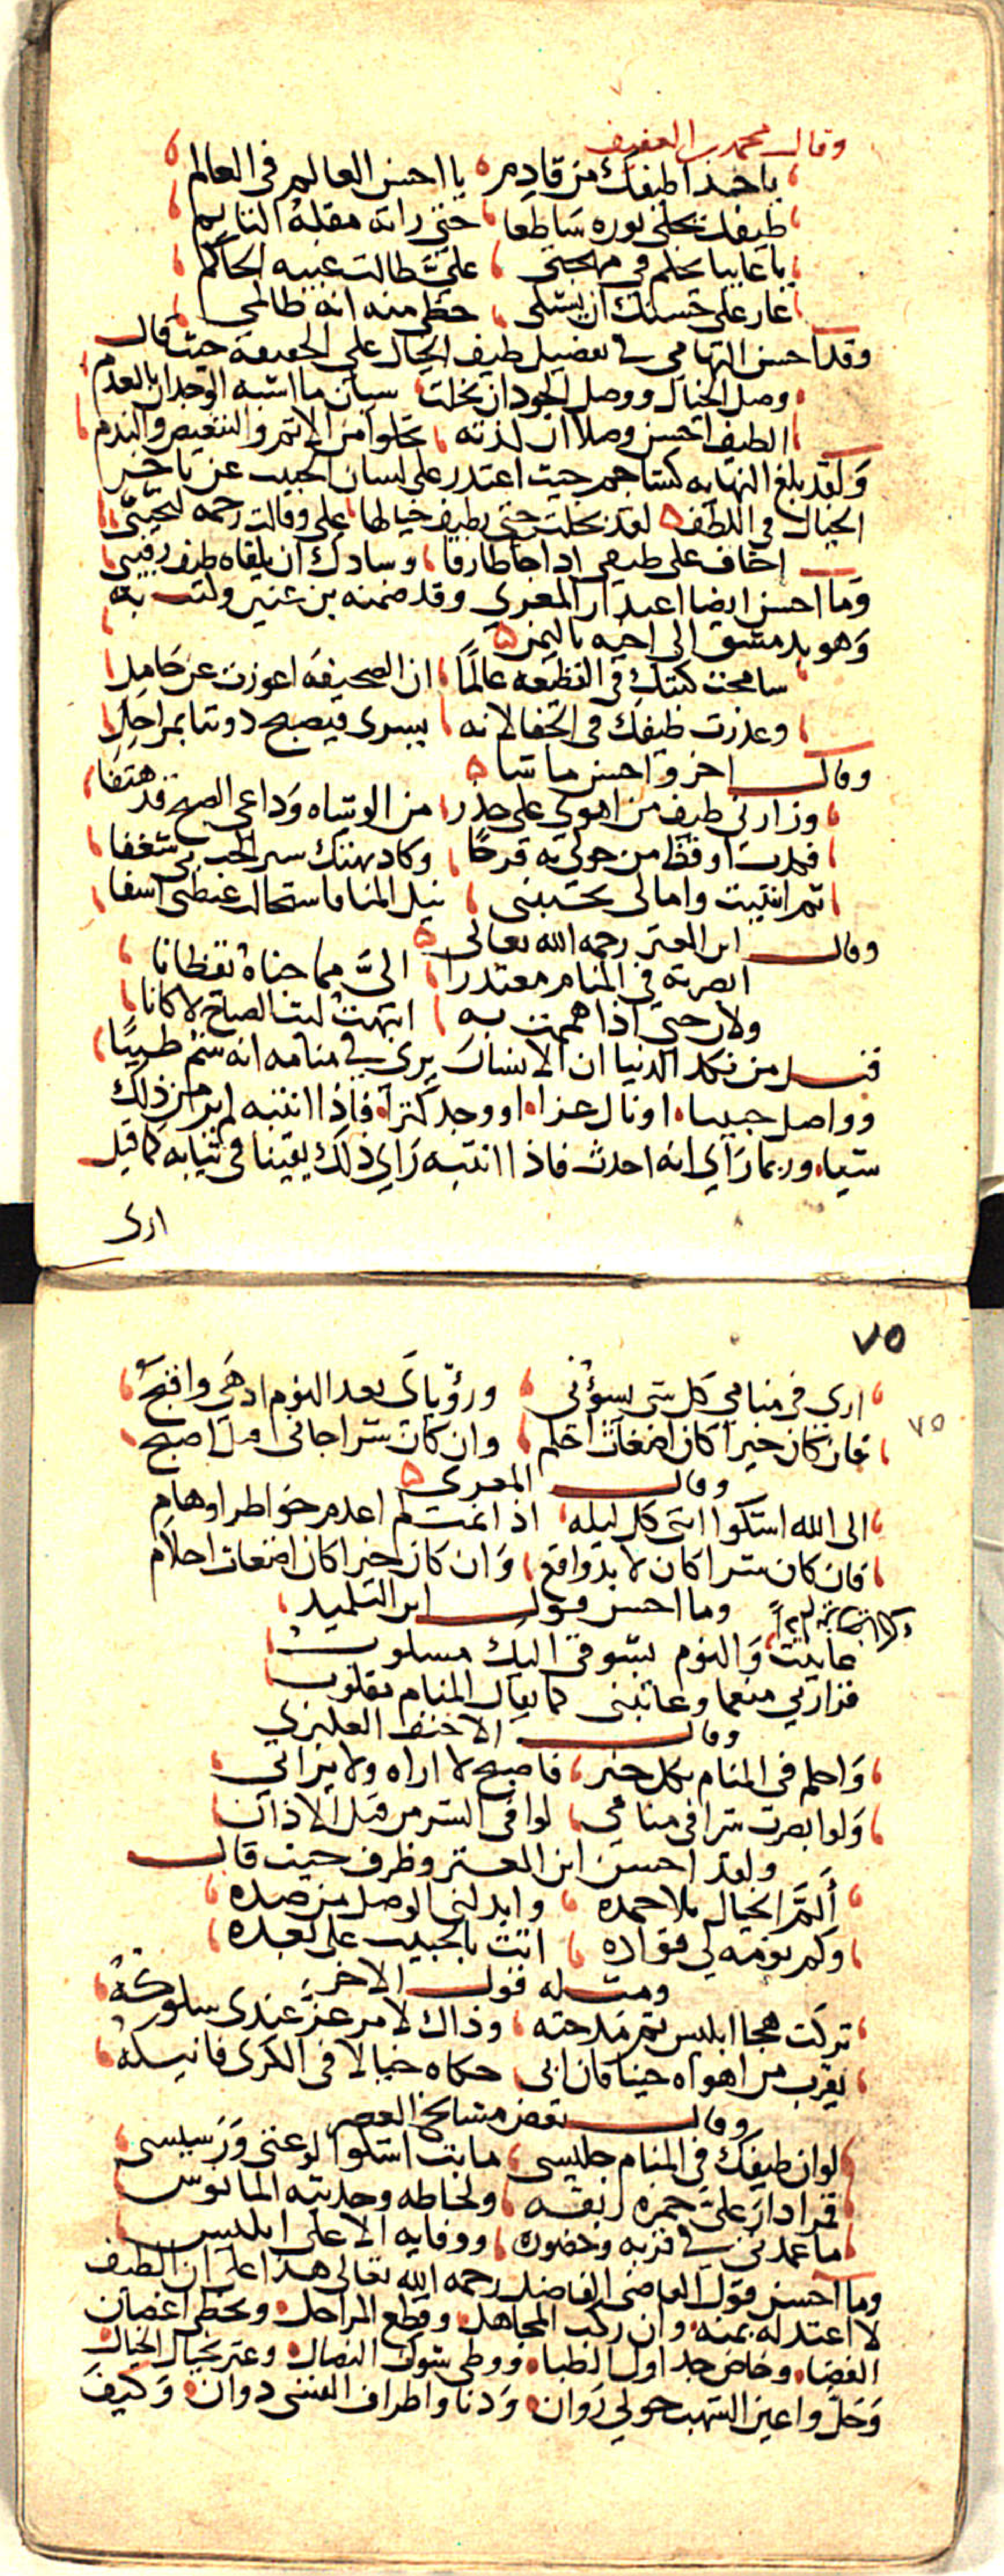 وقال محمد بن العفيف
يا حبذا طيفك من قادم يا احسن العالم في العالم
طيفك تجلى نوره ساطعا حتى راته مقلة النايم
يا غايبا يحكم في مهجتي عليّ طالت غيبه الحاكم
عار على حسنك ان يشتكى حظي منه انه ظالمي
وقد احسن التهامي في تفضيل طيف الخيال على الحقيقة حيث قال
وصل الخيال ووصل الخود ان بخلت سيان ما اشبه الوجدان بالعدم
الطيف احسن وصلا ان لذته تخلوا من الاثم والتنغيص والندم
ولقد بلغ النهايه كشاجم حيث اعتذر على لسان الحبيب عن تاخير
الخيال في اللطف لقد بخلت حتى بطيف خيالها علي وقالت رحمه لنحيبي
اخاف على طيفي اذا جا طارقا وسادك ان يلقاه طيف رقيبي
وما احسن ايضا اعتذار المعري وقد ضمنه بن عنين وكتب به
وهو بدمشق الى اخيه باليمن
سامحت كتبك في القطيعه عالمًا ان الصحيفه اعوزت عن حامل
وعذرت طيفك في الجفا لانه يسرى فيصبح دوننا بمراحل
وقال اخر واحسن ما شا
وزارني طيف من اهوى على حذر من الوشاه وداعي الصبح قد هتفا
فكدت اوقظ من حولي به فرحًا وكاد يهتك ستر الحب بي شغفا
ثم انتبهت وامالي تخيبني نيل المنا فاستحالت غبطتي اسفا
وقال ابن المعتز رحمه الله تعالى
ابصرته في المنام معتذرا اليّ مما جناه يقظانا
ولان حتى اذا هممت به انتبهت ليت الصباح لا كانا
قيل من نكد الدنيا ان الانسان يرى في منامه انه شم طيبًا
وواصل حبيبا او نال عزا او وجد كنزا فاذا انتبه لم ير من ذلك
شيا وربما راي انه احدث فاذا انتبه راي ذلك يقينا في ثيابه كما قيل
ارى
٧٥
ارى في منامي كل شي يسؤني ورؤياي بعد النوم ادهى واقبح
٧٥
فان كان خيرا كان اضغاث احلم وان كان شرا جاني قبل اصبح
وقال المعري
الى الله اشكوا انني كل ليله اذا نمت لم اعدم خواطر اوهام
فان كان شرا كان لا بد واقع وان كان خيرا كان اضغاث احلام
وما احسن قول ابن التلميذ
عاتبت والنوم بشوقي اليك مسلوب
فزارني منعما وعاتبني كما يقال المنام مقلوب
وقال الاحنف العكبري
واحلم في المنام بكل خير فاصبح لا اراه ولا يراني
ولو ابصرت شرا في منامي لوافى الشر من قبل الاذان
ولقد احسن ابن المعتز وظرف حيث قال
ألمّ الخيال بلا حمده وابدلني الوصل من صده
وكم نومه لي قواده اتت بالحبيب على بعده
ومثله قول الاخر
تركت هجا ابليس ثم مدحته وذاك لامر عزّ عندي سلوكه
يقرب من اهواه حينا فان ابى حكاه خيالا في الكرى فانيكه
وقال بعض مشايخ العصر
لو ان طيفك في المنام جليسى ما بت اشكوا لوعتي ورسيسى
قمرا دار عليّ خمرة ريقه ولحاظه وحديثه المانوس
ما عمدتي في قربه وحضوره ووفايه الا على ابليس
وما احسن قول القاضي الفاضل رحمه الله تعالى هذا على ان الطيف
لا اعتد له بمنه وان ركب المجاهل وقطع المراحل وتخطى اغصان
الفضا وخاض جداول الظبا ووطى شوك النصال وعثر بحبال الخيال
وحل واعين الشهب حولي روان ودنا واطراف القنى دوان وكيف